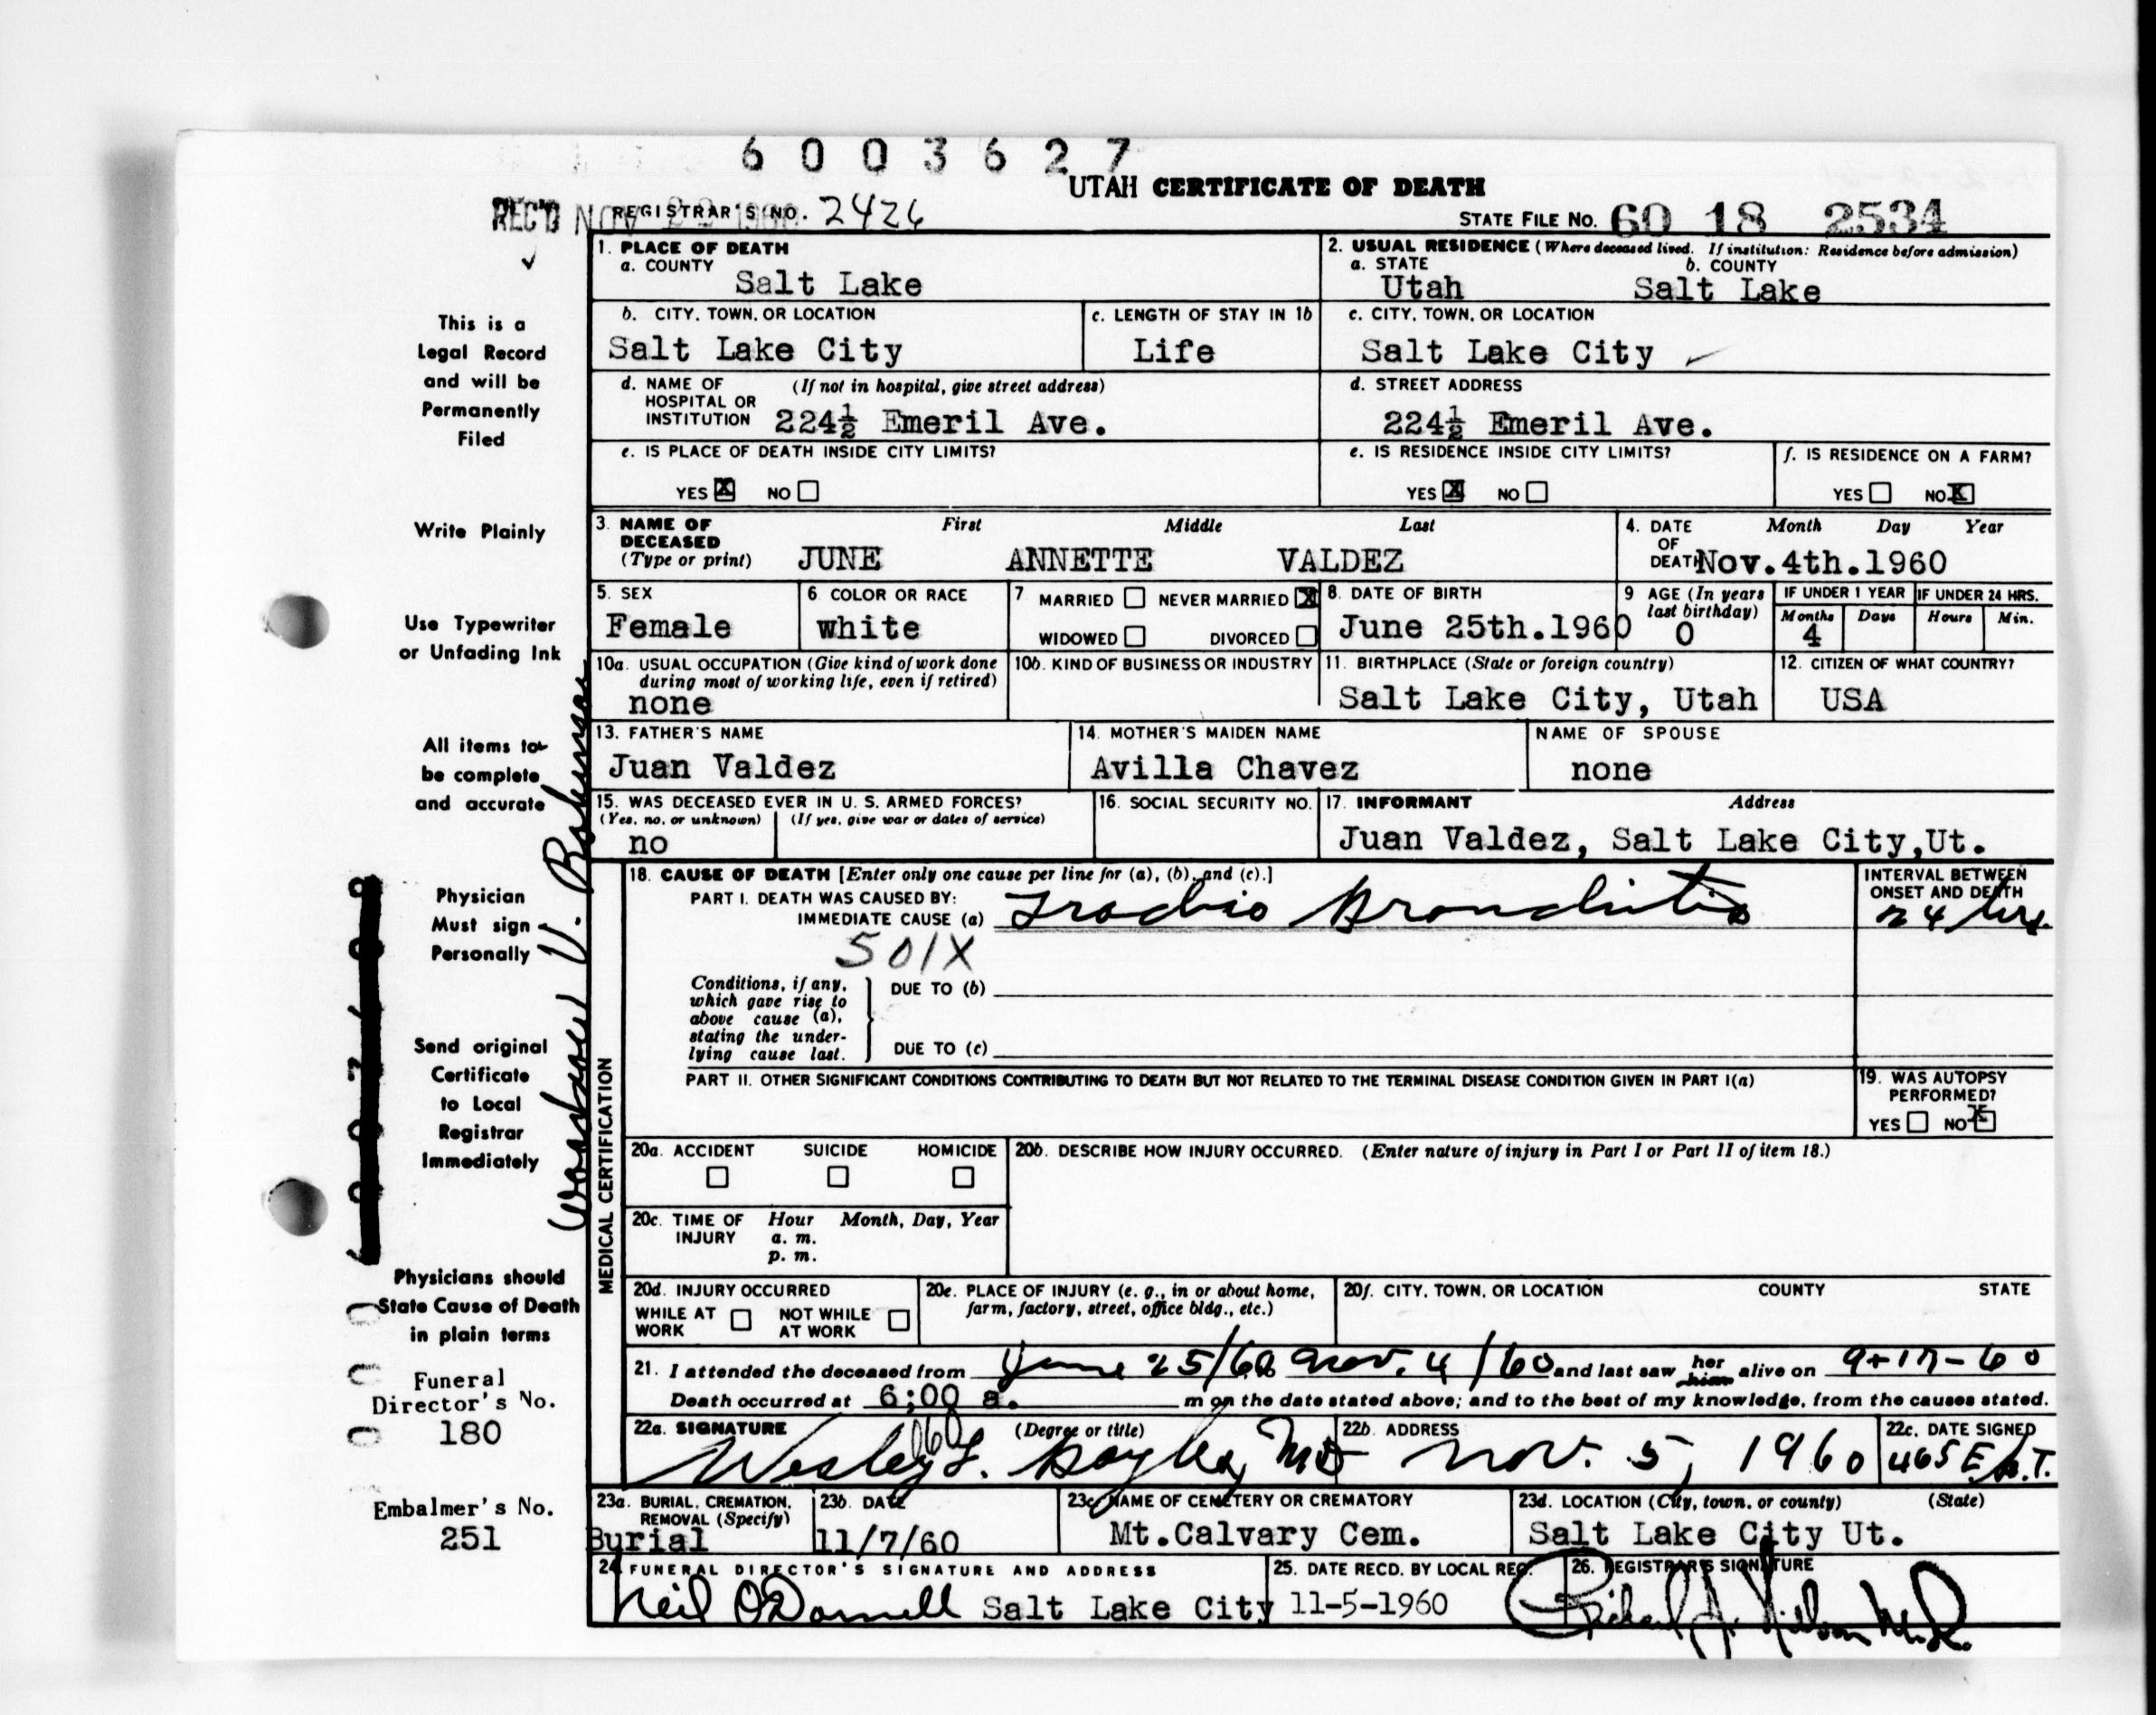 6003627
UTAH CERTIFICATE OF DEATH
REC'D NOV 22 1960 REGISTRAR'S NO. 2426
STATE FILE NO. 60 18 2534
1. PLACE OF DEATH
a. COUNTY
Salt Lake
2. USUAL RESIDENCE (Where deceased lived. If institution: Residence before admission)
a. STATE b. COUNTY
Utah Salt Lake
b. CITY, TOWN, OR LOCATION
Salt Lake City
c. LENGTH OF STAY IN 1b
Life
c. CITY, TOWN, OR LOCATION
Salt Lake City
d. NAME OF HOSPITAL OR INSTITUTION (If not in hospital, give street address)
224½ Emeril Ave.
d. STREET ADDRESS
224½ Emeril Ave.
e. IS PLACE OF DEATH INSIDE CITY LIMITS?
YES X NO
e. IS RESIDENCE INSIDE CITY LIMITS?
YES X NO
f. IS RESIDENCE ON A FARM?
YES NO X
3. NAME OF DECEASED (Type or print) First Middle Last
JUNE ANNETTE VALDEZ
4. DATE OF DEATH Month Day Year
Nov.4th.1960
5. SEX
Female
6. COLOR OR RACE
white
7 MARRIED NEVER MARRIED X
WIDOWED DIVORCED
8. DATE OF BIRTH
June 25th.1960
9 AGE (In years last birthday)
0
IF UNDER 1 YEAR IF UNDER 24 HRS.
Months Days Hours Min.
4
10a. USUAL OCCUPATION (Give kind of work done during most of working life, even if retired)
none
10b. KIND OF BUSINESS OR INDUSTRY
11. BIRTHPLACE (State or foreign country)
Salt Lake City, Utah
12. CITIZEN OF WHAT COUNTRY?
USA
13. FATHER'S NAME
Juan Valdez
14. MOTHER'S MAIDEN NAME
Avilla Chavez
NAME OF SPOUSE
none
15. WAS DECEASED EVER IN U. S. ARMED FORCES?
(Yes, no, or unknown) (If yes, give war or dates of service)
no
16. SOCIAL SECURITY NO.
17. INFORMANT Address
Juan Valdez, Salt Lake City,Ut.
MEDICAL CERTIFICATION
18. CAUSE OF DEATH [Enter only one cause per line for (a), (b), and (c).]
PART I. DEATH WAS CAUSED BY:
IMMEDIATE CAUSE (a) Bronchitis
INTERVAL BETWEEN ONSET AND DEATH
24 hrs.
501X
Conditions, if any, which gave rise to above cause (a), stating the underlying cause last.
DUE TO (b)
DUE TO (c)
PART II. OTHER SIGNIFICANT CONDITIONS CONTRIBUTING TO DEATH BUT NOT RELATED TO THE TERMINAL DISEASE CONDITION GIVEN IN PART I(a)
19. WAS AUTOPSY PERFORMED?
YES NO X
20a. ACCIDENT SUICIDE HOMICIDE
20b. DESCRIBE HOW INJURY OCCURRED. (Enter nature of injury in Part I or Part II of item 18.)
20c. TIME OF INJURY Hour Month, Day, Year
a. m.
p. m.
20d. INJURY OCCURRED
WHILE AT WORK NOT WHILE AT WORK
20e. PLACE OF INJURY (e. g., in or about home, farm, factory, street, office bldg., etc.)
20f. CITY, TOWN, OR LOCATION COUNTY STATE
21. I attended the deceased from June 25/60 Nov. 4/60 and last saw her him alive on 9-17-60
Death occurred at 6:00 a. m on the date stated above; and to the best of my knowledge, from the causes stated.
22a. SIGNATURE (Degree or title)
Wesley L. MD
22b. ADDRESS
Nov. 5, 1960
22c. DATE SIGNED
465 E
23a. BURIAL, CREMATION, REMOVAL (Specify)
Burial
23b. DATE
11/7/60
23c. NAME OF CEMETERY OR CREMATORY
Mt.Calvary Cem.
23d. LOCATION (City, town, or county) (State)
Salt Lake City Ut.
24. FUNERAL DIRECTOR'S SIGNATURE AND ADDRESS
Neil O'Donnell Salt Lake City
25. DATE RECD. BY LOCAL REG.
11-5-1960
26. REGISTRAR'S SIGNATURE
This is a
Legal Record
and will be
Permanently
Filed
Write Plainly
Use Typewriter
or Unfading Ink
All items to
be complete
and accurate
Physician
Must sign
Personally
Send original
Certificate
to Local
Registrar
Immediately
Physicians should
State Cause of Death
in plain terms
Funeral
Director's No.
180
Embalmer's No.
251